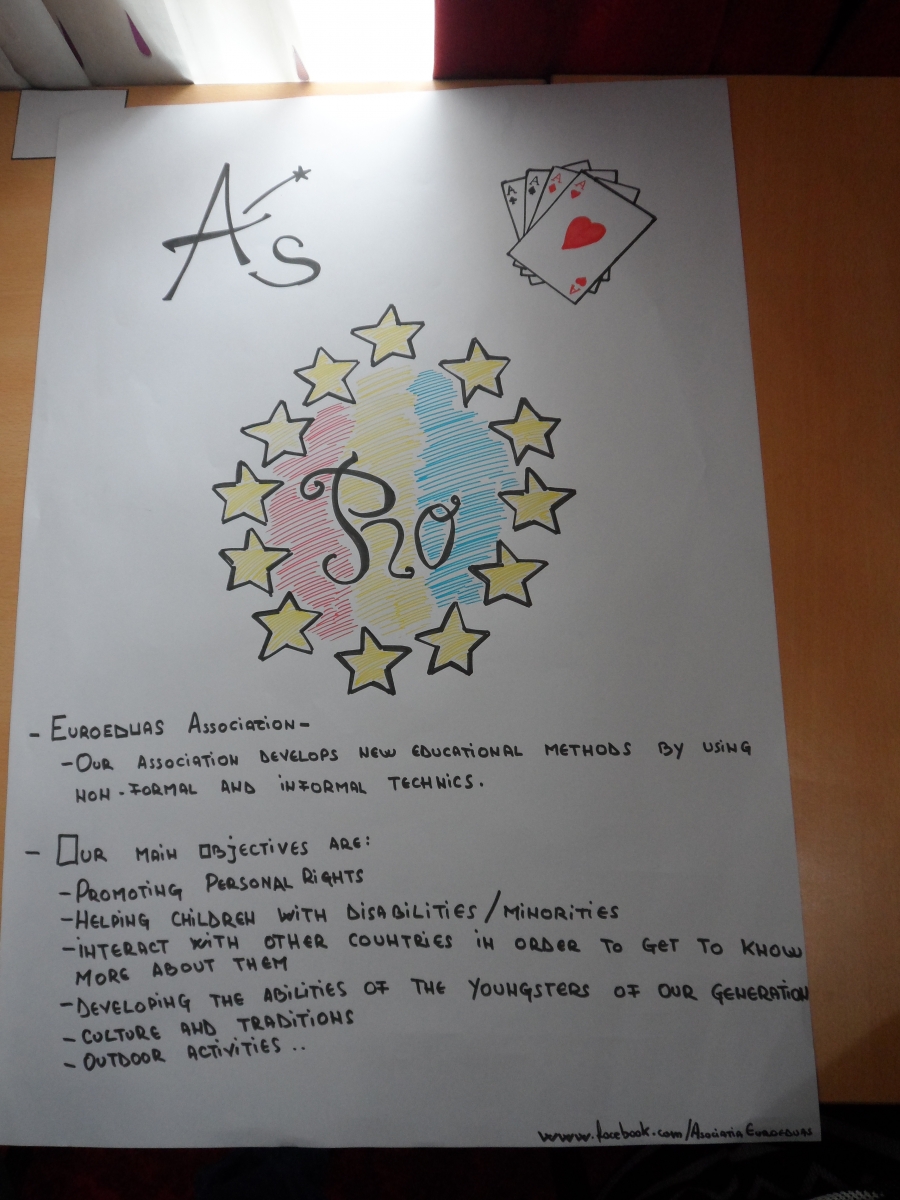 As
A A A A
A
Ro
- EUROEDUAS ASSOCIATION -
- OUR ASSOCIATION DEVELOPS NEW EDUCATIONAL METHODS BY USING
NON-FORMAL AND INFORMAL TECHNICS.
- OUR MAIN OBJECTIVES ARE:
- PROMOTING PERSONAL RIGHTS
- HELPING CHILDREN WITH DISABILITIES / MINORITIES
- INTERACT WITH OTHER COUNTRIES IN ORDER TO GET TO KNOW
MORE ABOUT THEM
- DEVELOPING THE ABILITIES OF THE YOUNGSTERS OF OUR GENERATION
- CULTURE AND TRADITIONS
- OUTDOOR ACTIVITIES ..
www.facebook.com/AsociatiaEUROEDUAS